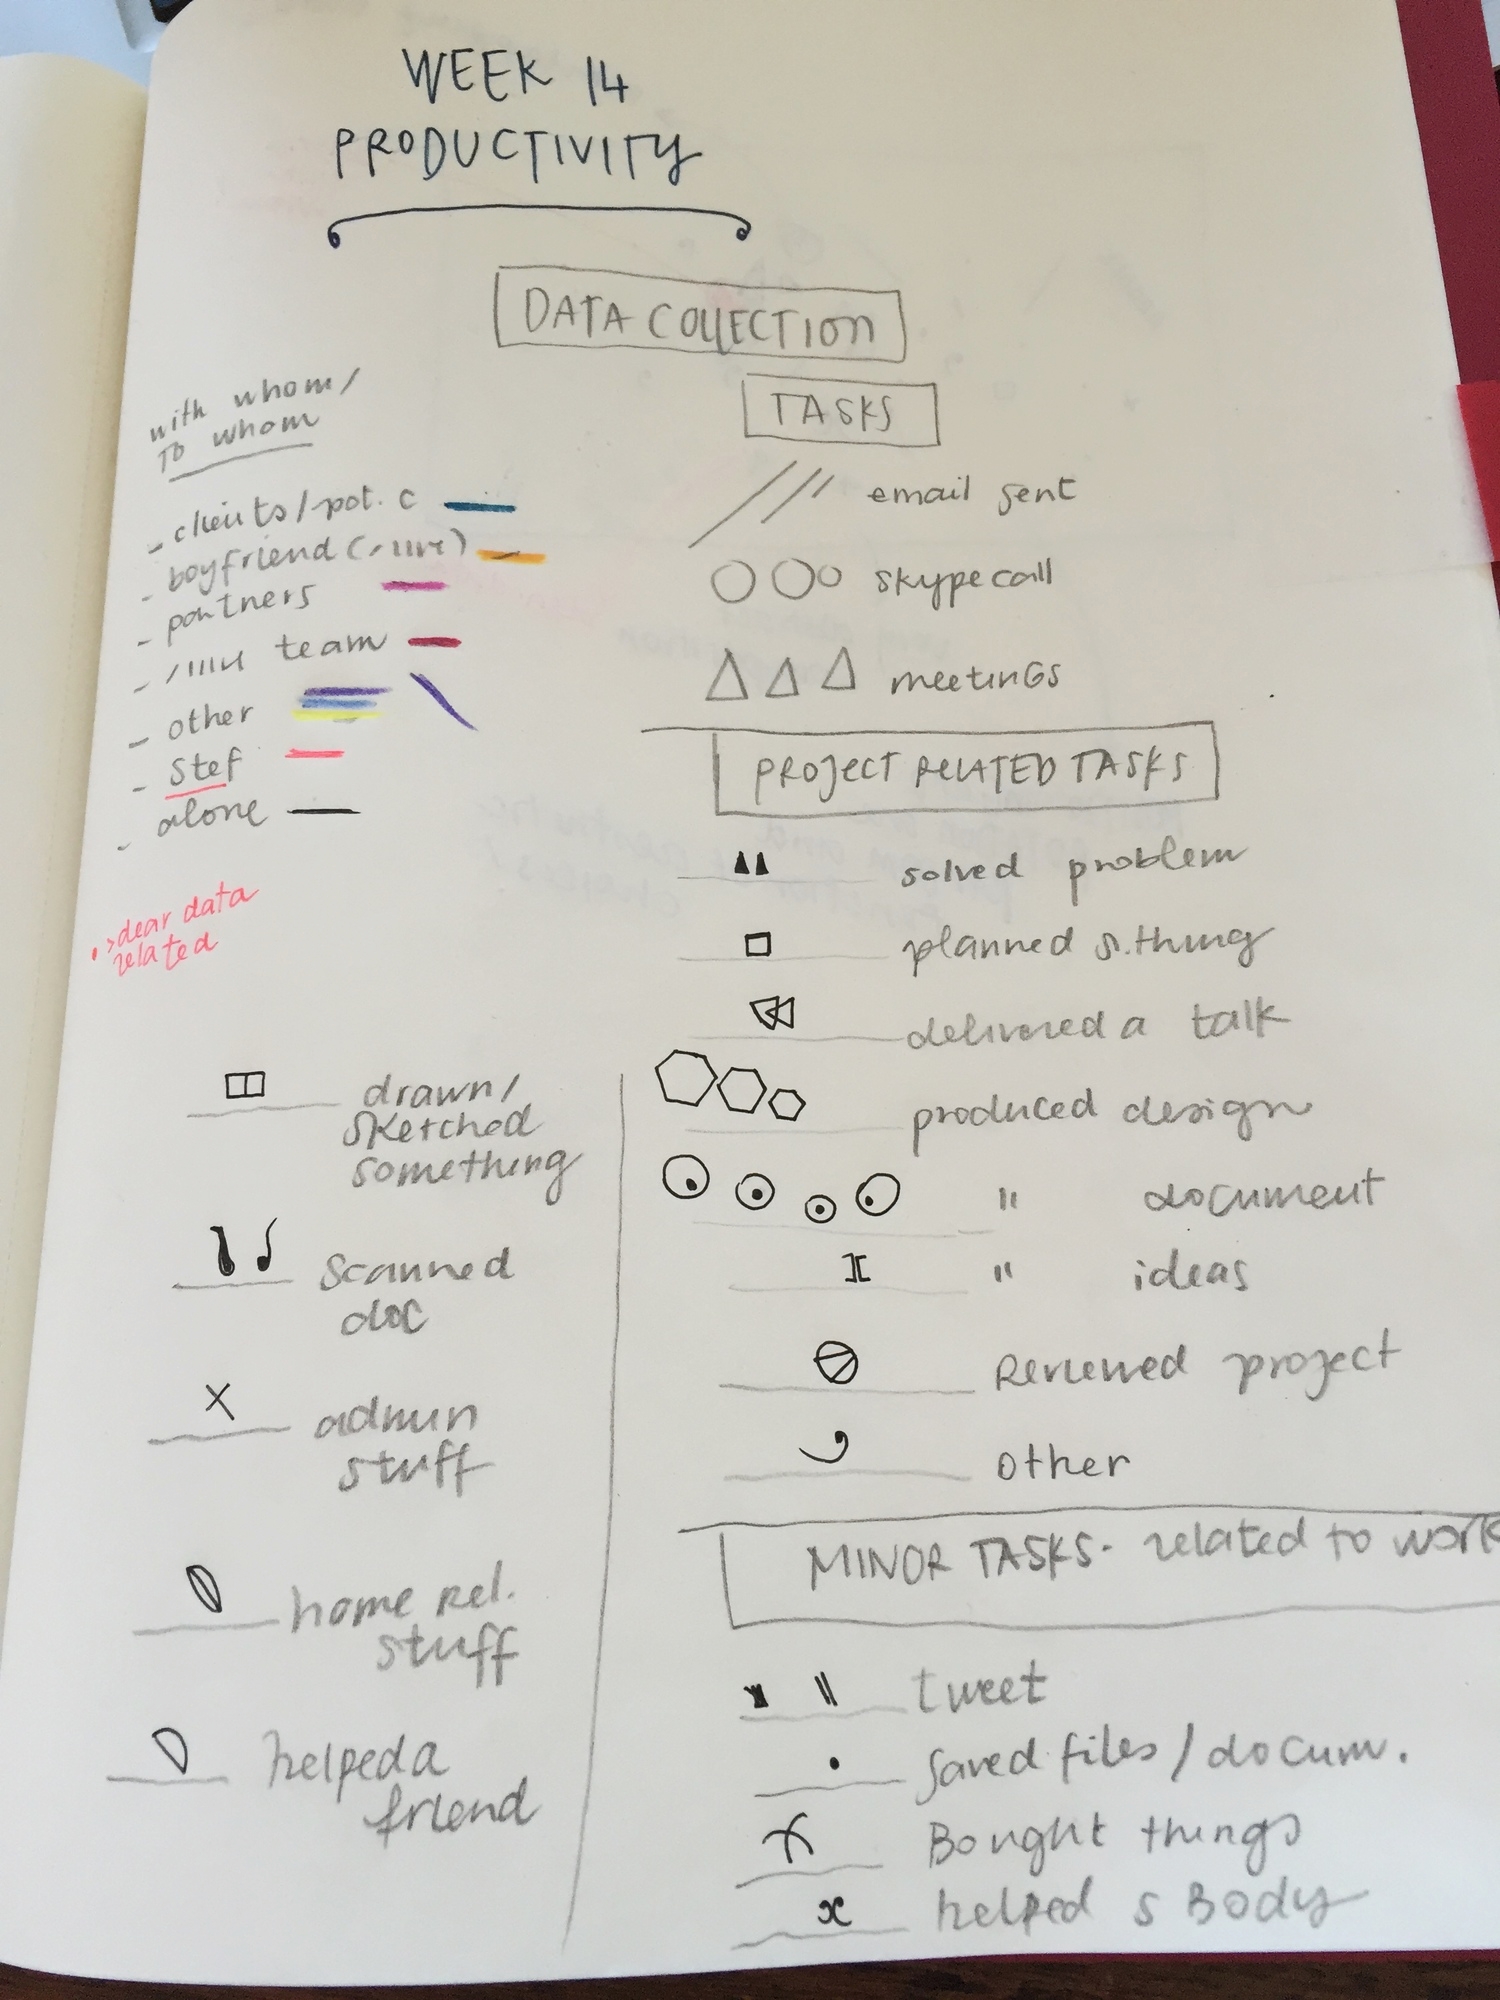 WEEK 14
PRODUCTIVITY
DATA COLLECTION
with whom/
to whom
- clients/pot. c
- boyfriend (
- partners
- team
- other
- Stef
- alone
• > dear data
related
TASKS
email sent
skype call
meetings
PROJECT RELATED TASKS
solved problem
planned s.thing
delivered a talk
produced design
" document
" ideas
Reviewed project
other
MINOR TASKS - related to work
tweet
saved files / docum.
Bought things
helped s Body
drawn/
sketched
something
scanned
doc
admin
stuff
home rel.
stuff
helped a
friend